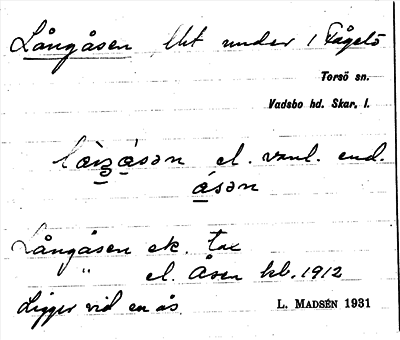 Långåsen Ut under 1 Fågelö
Torsö sn.
Vadsbo hd. Skar. l.
el. vanl. end.
åsən
Långåsen ek. tax
" el. Åsen kb. 1912
Ligger vid en ås. L. MADSÉN 1931